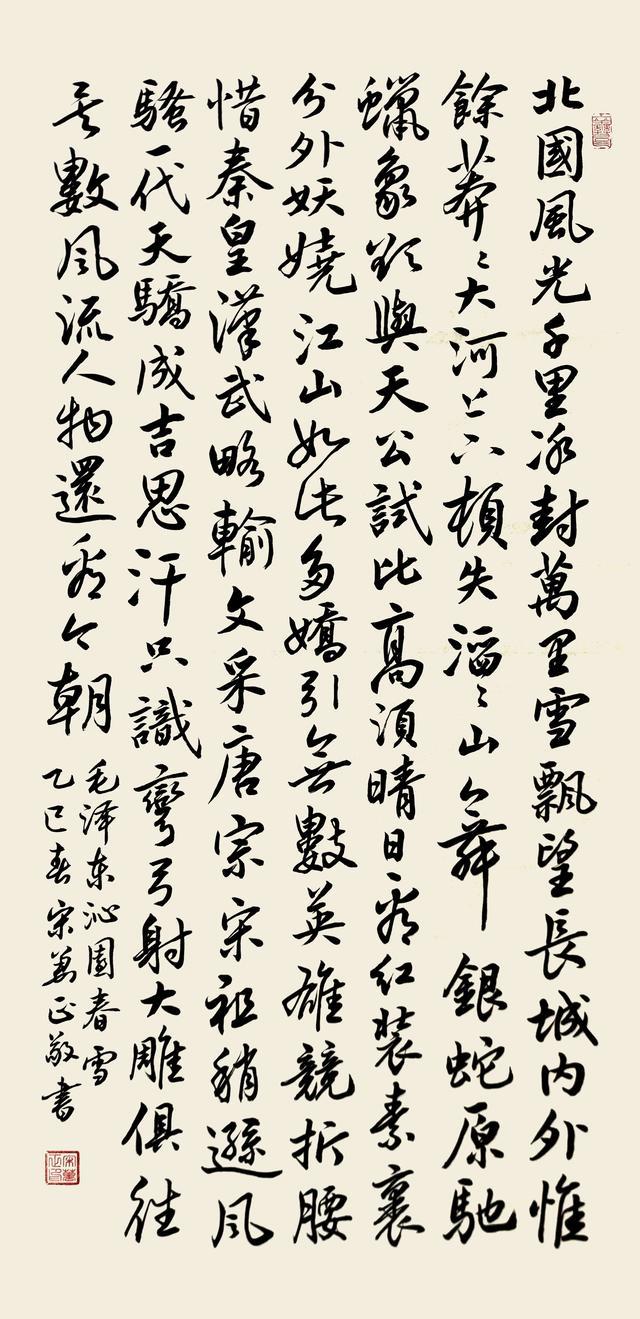 北國風光千里冰封萬里雪飄望長城内外惟
餘莽〻大河上下頓失滔〻山舞銀蛇原馳
蠟象欲與天公試比高須晴日看紅裝素裹
分外妖嬈江山如此多嬌引無數英雄競折腰
惜秦皇漢武略輸文采唐宗宋祖稍遜風
騷一代天驕成吉思汗只識彎弓射大雕俱往
矣數風流人物還看今朝
毛泽东沁園春雪
乙巳春宋萬正敬書